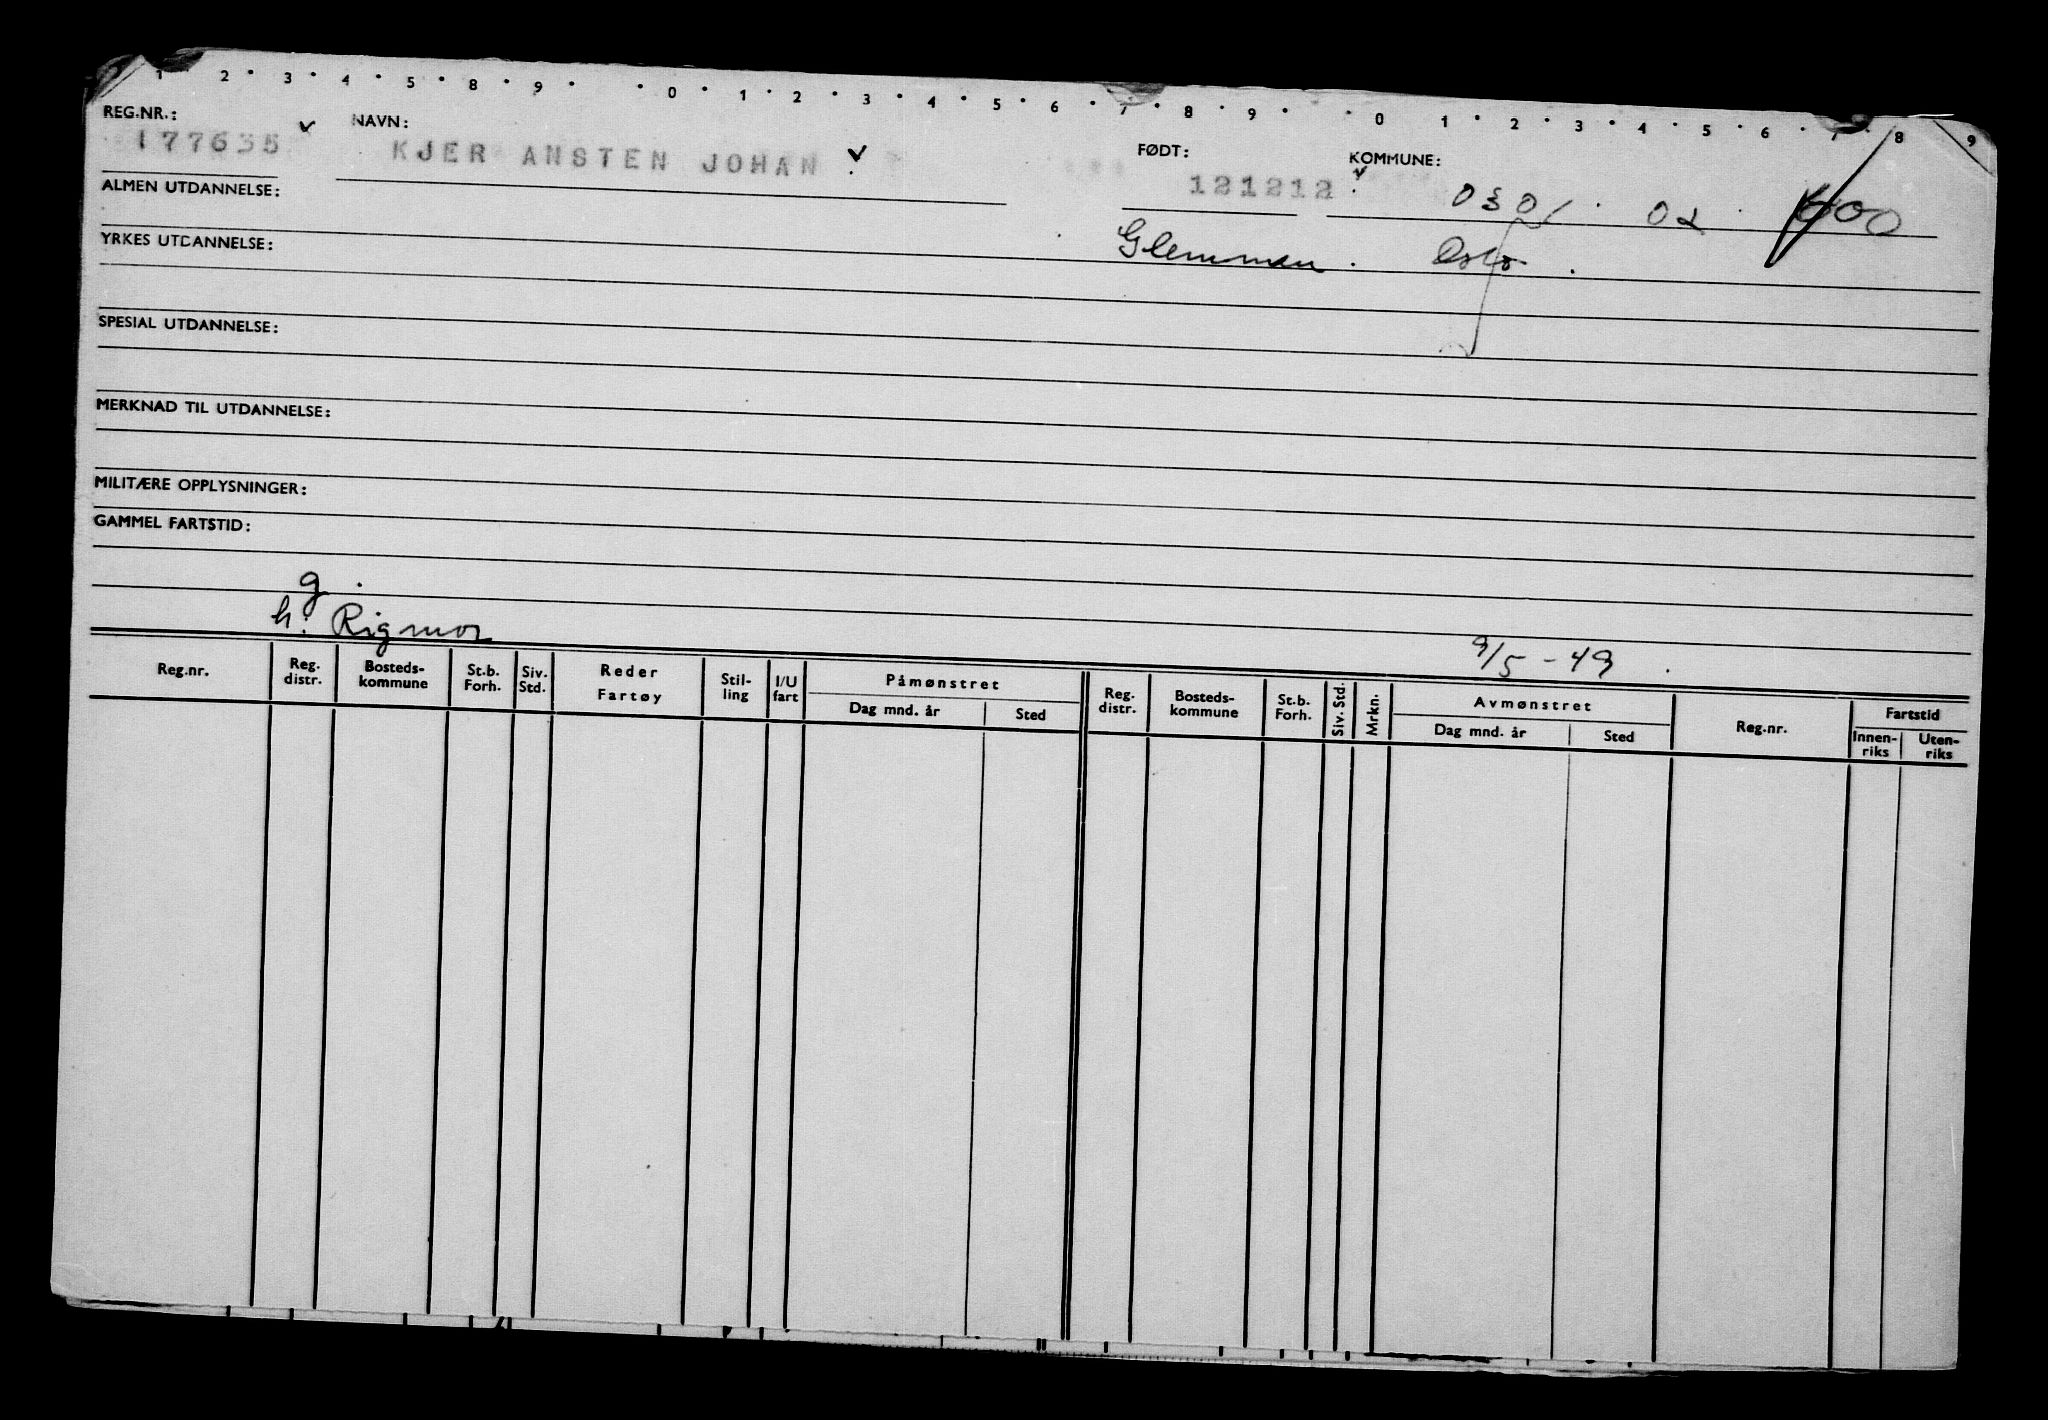 1 · 2 · 3 · 4 · 5 · 8 · 9 · · 0 · 1 · 2 · 3 · 4 · 5 · 6 · 7 · 8 · 9 · · 0 · 1 · 2 · 3 · 4 · 5 · 6 · 7 · 8 · 9
REG.NR.: NAVN: FØDT: KOMMUNE:
177635 KJER ANSTEN JOHAN 121212 0301 02 600
ALMEN UTDANNELSE:
Glemmen. Oslo.
YRKES UTDANNELSE:
SPESIAL UTDANNELSE:
MERKNAD TIL UTDANNELSE:
MILITÆRE OPPLYSNINGER:
GAMMEL FARTSTID:
g.
h: Rigmor 9/5-49.
Reg.nr. Reg. distr. Bosteds-kommune St.b. Forh. Siv. Std. Reder Fartøy Stil-ling I/U fart Påmønstret Dag mnd. år Sted Reg. distr. Bosteds-kommune St.b. Forh. Siv. Std. Mrkn. Avmønstret Dag mnd. år Sted Reg.nr. Fartstid Innen-riks Uten-riks